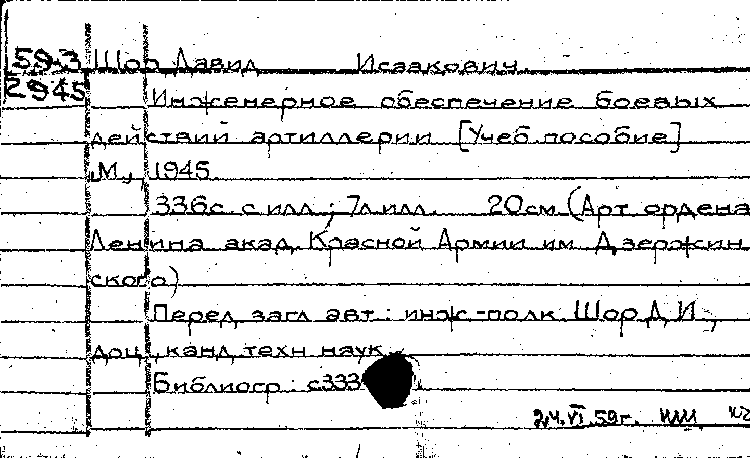 59-3 Шор Давид Исаакович
2945 Инженерное обеспечение боевых
действий артиллерии [Учеб. пособие]
М., 1945.
336с. с илл.; 7л.илл. 20см (Арт. ордена
Ленина акад. Красной Армии им. Дзержин
ского)
Перед загл. авт.: инж.-полк. Шор Д.И.,
доц., канд. техн. наук.
Библиогр.: с333
24.VI.59г.